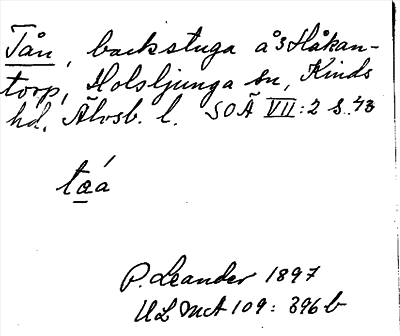 Tån, backstuga å Håkan-
torp, Holsljunga sn, Kinds
hd. Älvsb. l. SOÄ VII:2 s. 43
P. Leander 1897
ULMA 109: 396 b